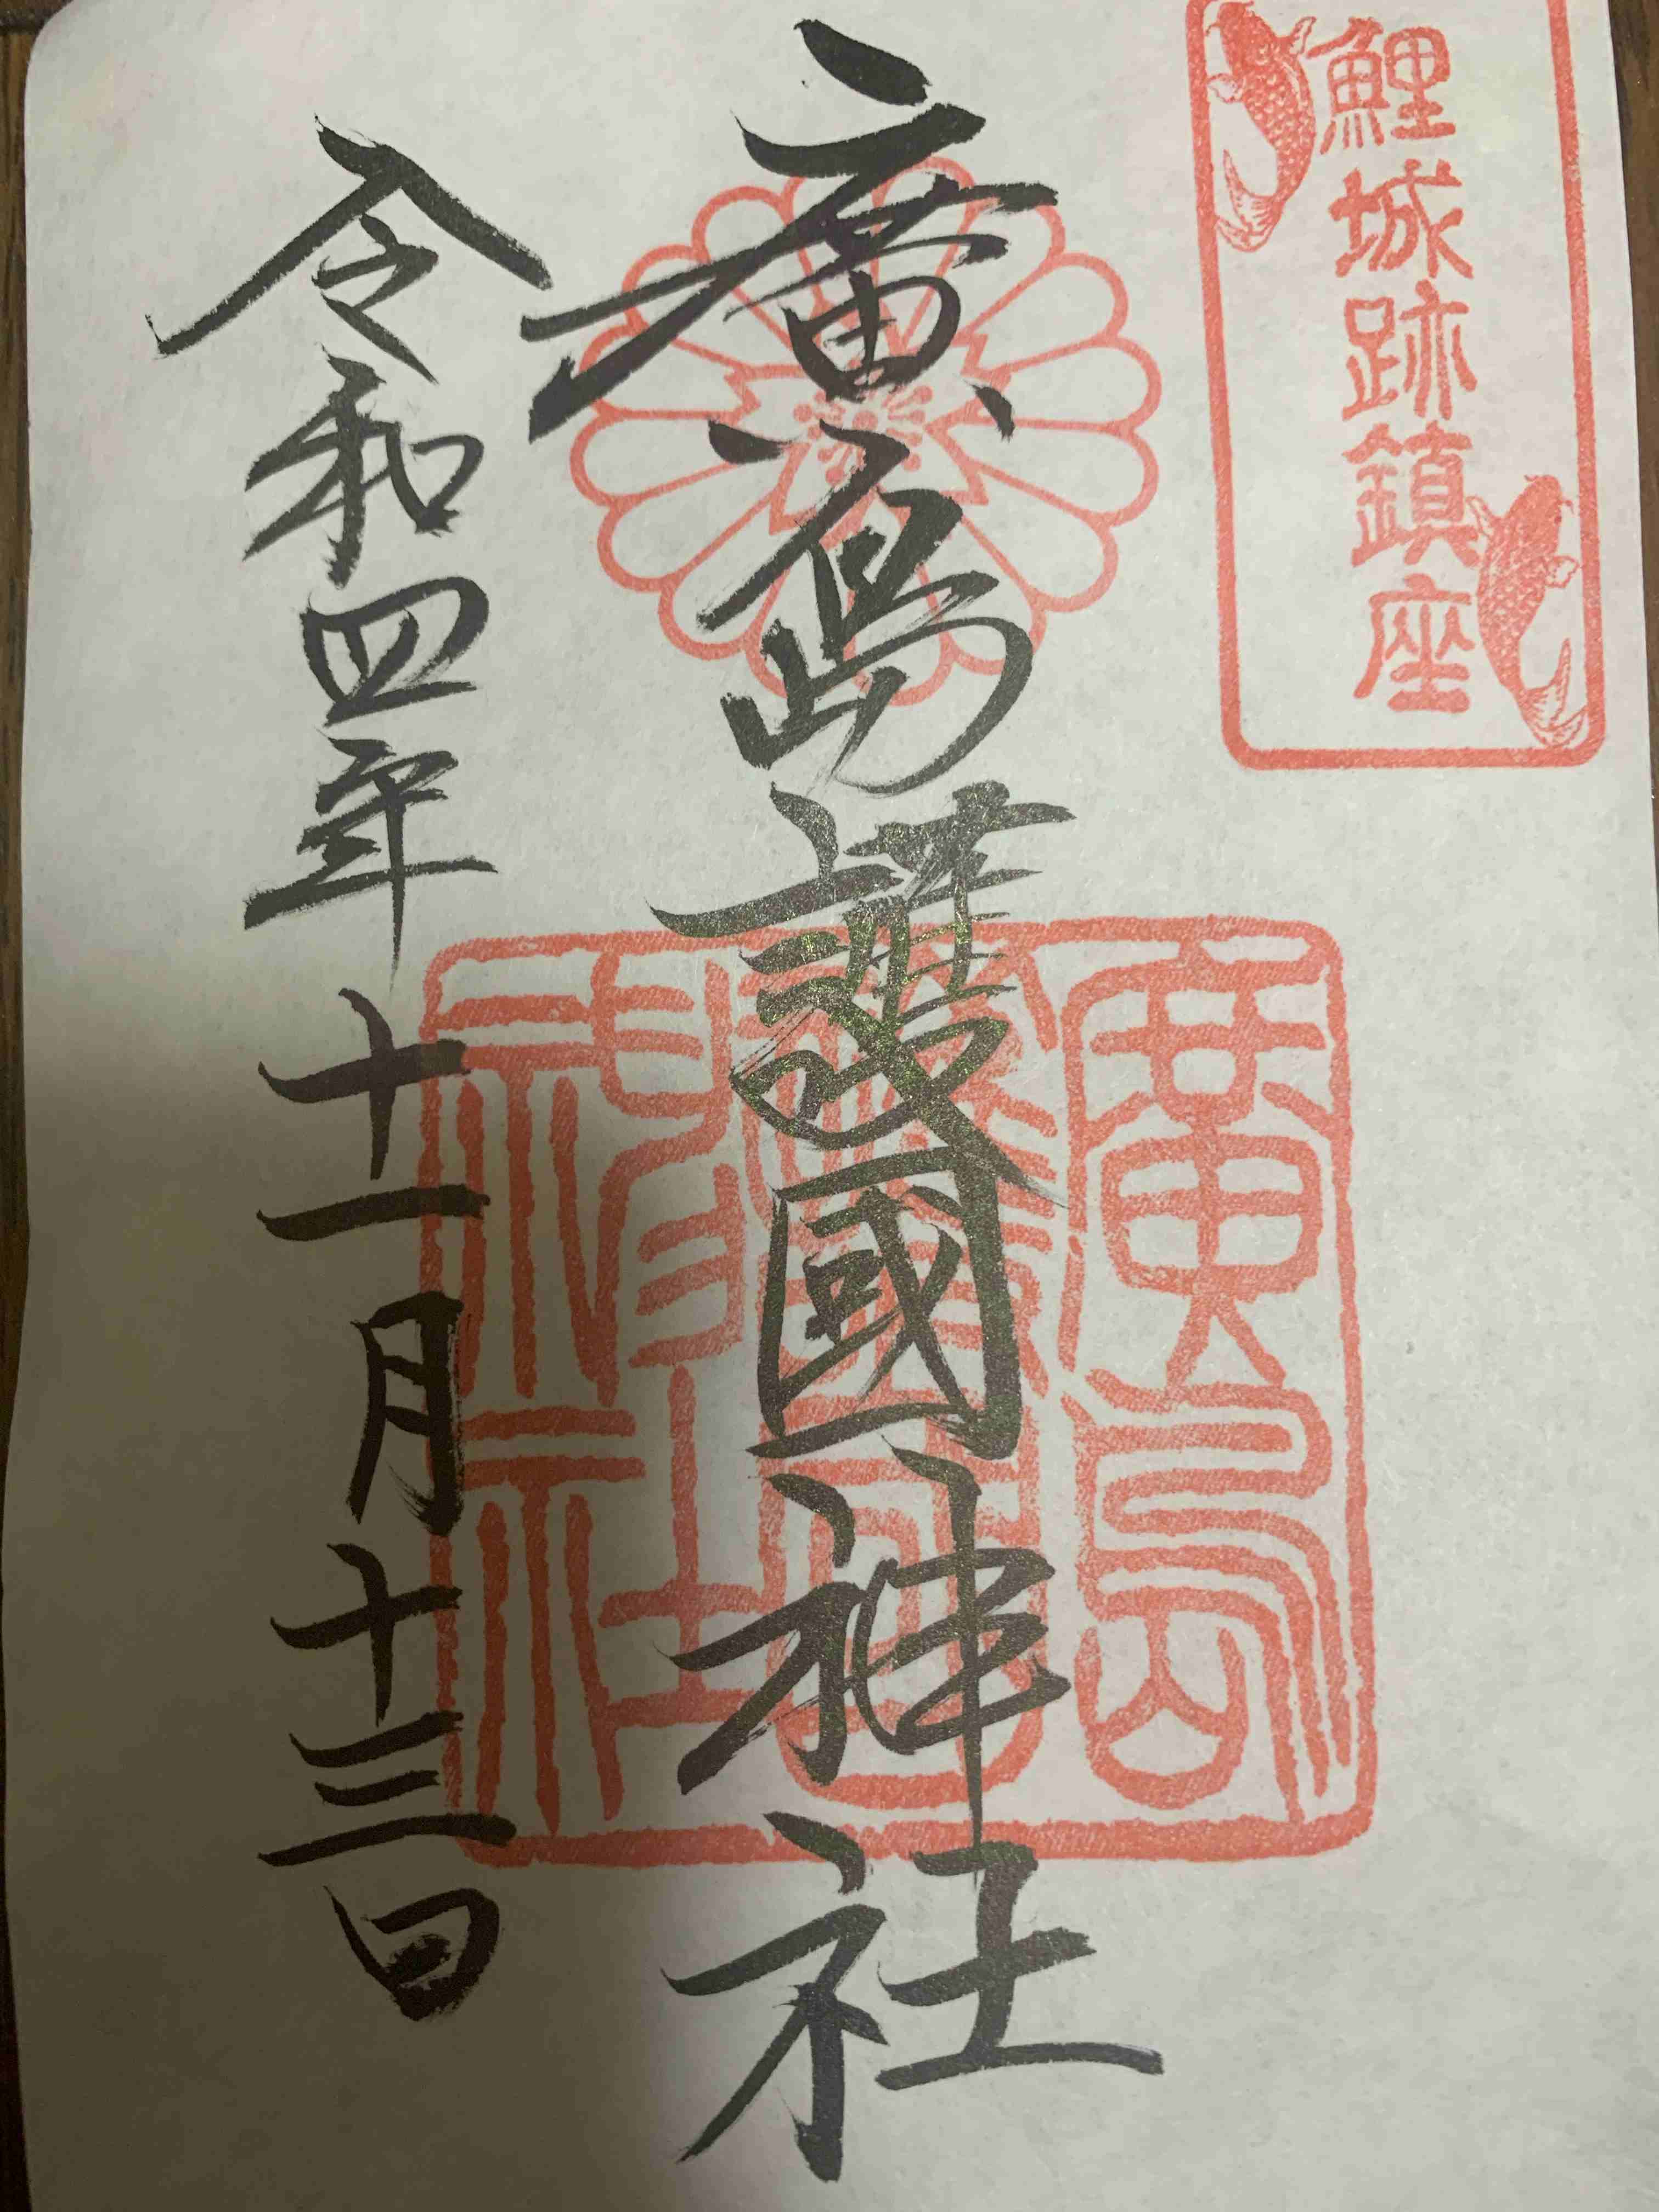 鯉城跡鎮座
廣島護國神社
廣島
護國
神社
令和四年十一月十三日